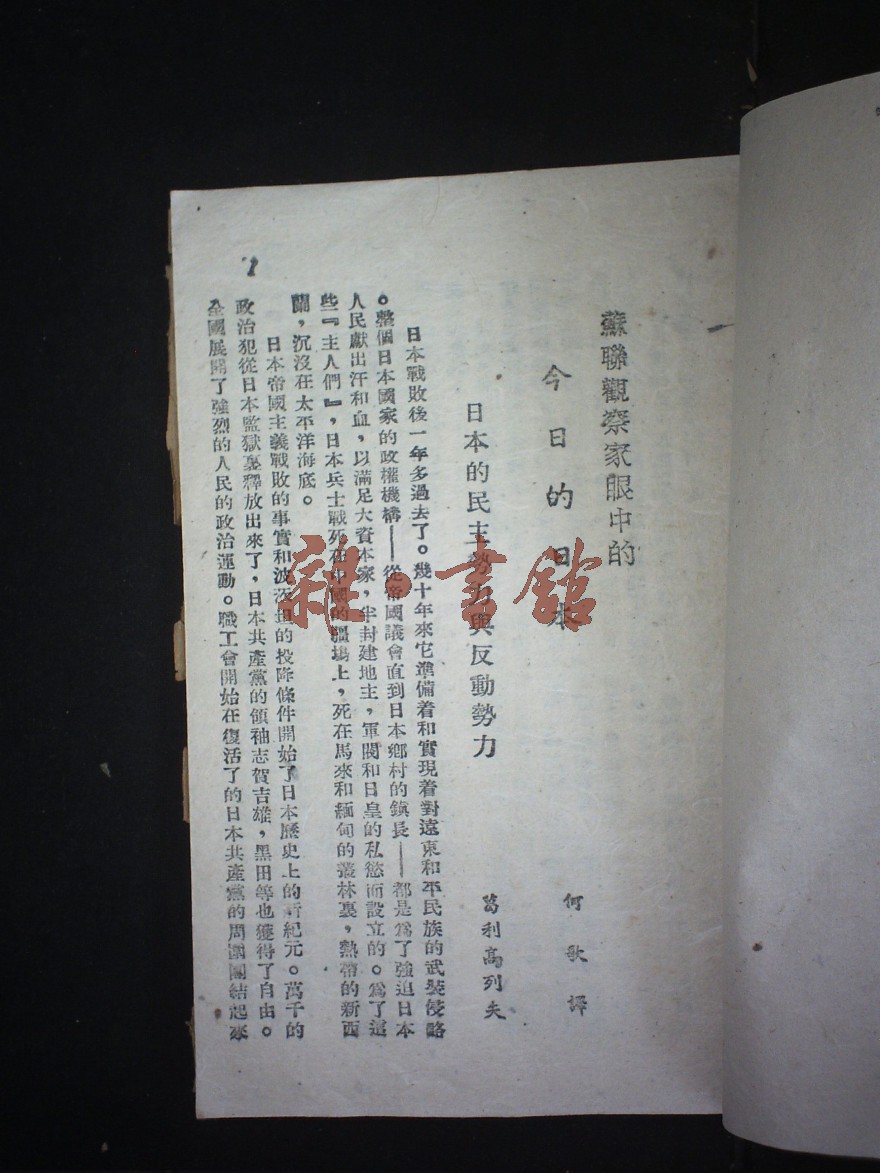 蘇聯觀察家眼中的
今日的日本
何歌譯
日本的民主勢力與反動勢力
葛利高列夫
日本戰敗後一年多過去了。幾十年來它準備着和實現着對遠東和平民族的武裝侵略
。整個日本國家的政權機構——從帝國議會直到日本鄉村的鎮長——都是爲了強迫日本
人民獻出汗和血，以滿足大資本家，半封建地主，軍閥和日皇的私慾而設立的。爲了這
些『主人們』，日本兵士戰死在中國的疆場上，死在馬來和緬甸的叢林裏，熱帶的新西
蘭，沉沒在太平洋海底。
日本帝國主義戰敗的事實和波茨坦的投降條件開始了日本歷史上的新紀元。萬千的
政治犯從日本監獄裏釋放出來了，日本共產黨的領袖志賀吉雄，黑田等也獲得了自由。
全國展開了強烈的人民的政治運動。職工會開始在復活了的日本共產黨的周圍團結起來
1
雜·書館